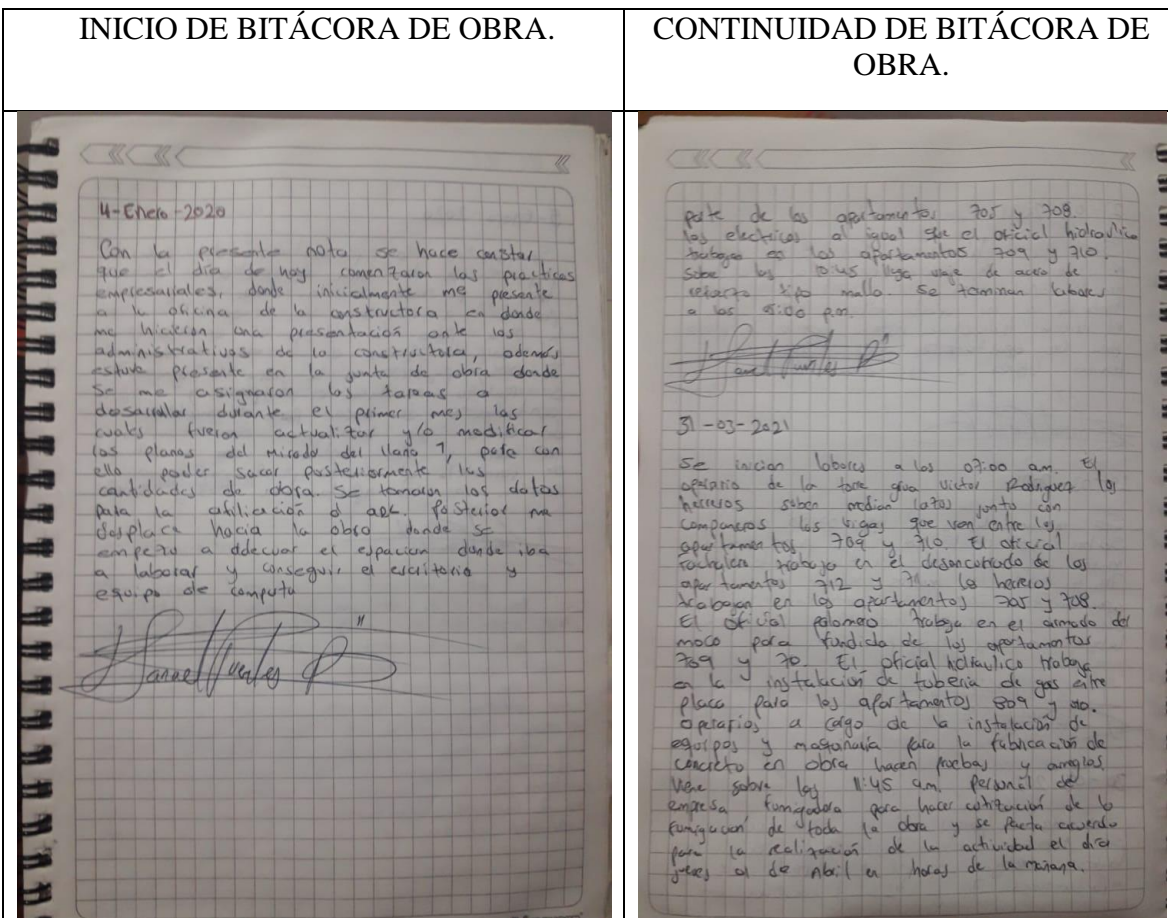 INICIO DE BITÁCORA DE OBRA.
CONTINUIDAD DE BITÁCORA DE
OBRA.
4-Enero-2020
Con la presente nota se hace constar
que el día de hoy comenzaron las practicas
empresariales, donde inicialmente me presente
a la oficina de la constructora en donde
me hicieron una presentación ante los
administrativos de la constructora, además
estuve presente en la junta de obra donde
se me asignaron las tareas a
desarrollar durante el primer mes las
cuales fueron actualizar y/o modificar
los planos del mirador del llano 7, para con
ello poder sacar posteriormente las
cantidades de obra. Se tomaron los datos
para la afiliación a Posterior me
desplace hacia la obra donde se
empezo a adecuar el espacion donde iba
a laborar y conseguir el escritorio y
equipo de computo
parte de los apartamentos 705 y 708.
los electricos al igual que el oficial hidraulico
trabajan en los apartamentos 709 y 710.
Sobre las 10:45 llega viaje de acero de
refuerzo tipo malla. Se terminan labores
a las 05:00 p.m.
31-03-2021
Se inician labores a las 07:00 a.m. El
operario de la torre grua Victor Rodriguez los
herreros suben junto con
compañeros las vigas que van entre los
apartamentos 709 y 710. El oficial
trabaja en el de los
apartamentos 712 y los herreros
trabajan en los apartamentos 705 y 708.
El oficial palomero trabaja en el armado del
para fundida de los apartamentos
y El oficial trabaja
en la instalación de tuberia de gas entre
placa para los apartamentos 809 y
operarios a cargo de la instalación de
equipos y para la fabricación de
concreto en obra hacen pruebas y arreglos.
Viene sobre las 11:45 a.m. personal de
empresa fumigadora para hacer cotización de la
fumigación de toda la obra y se pacta acuerdo
para la realización de la actividad el día
jueves 01 de Abril en horas de la mañana.